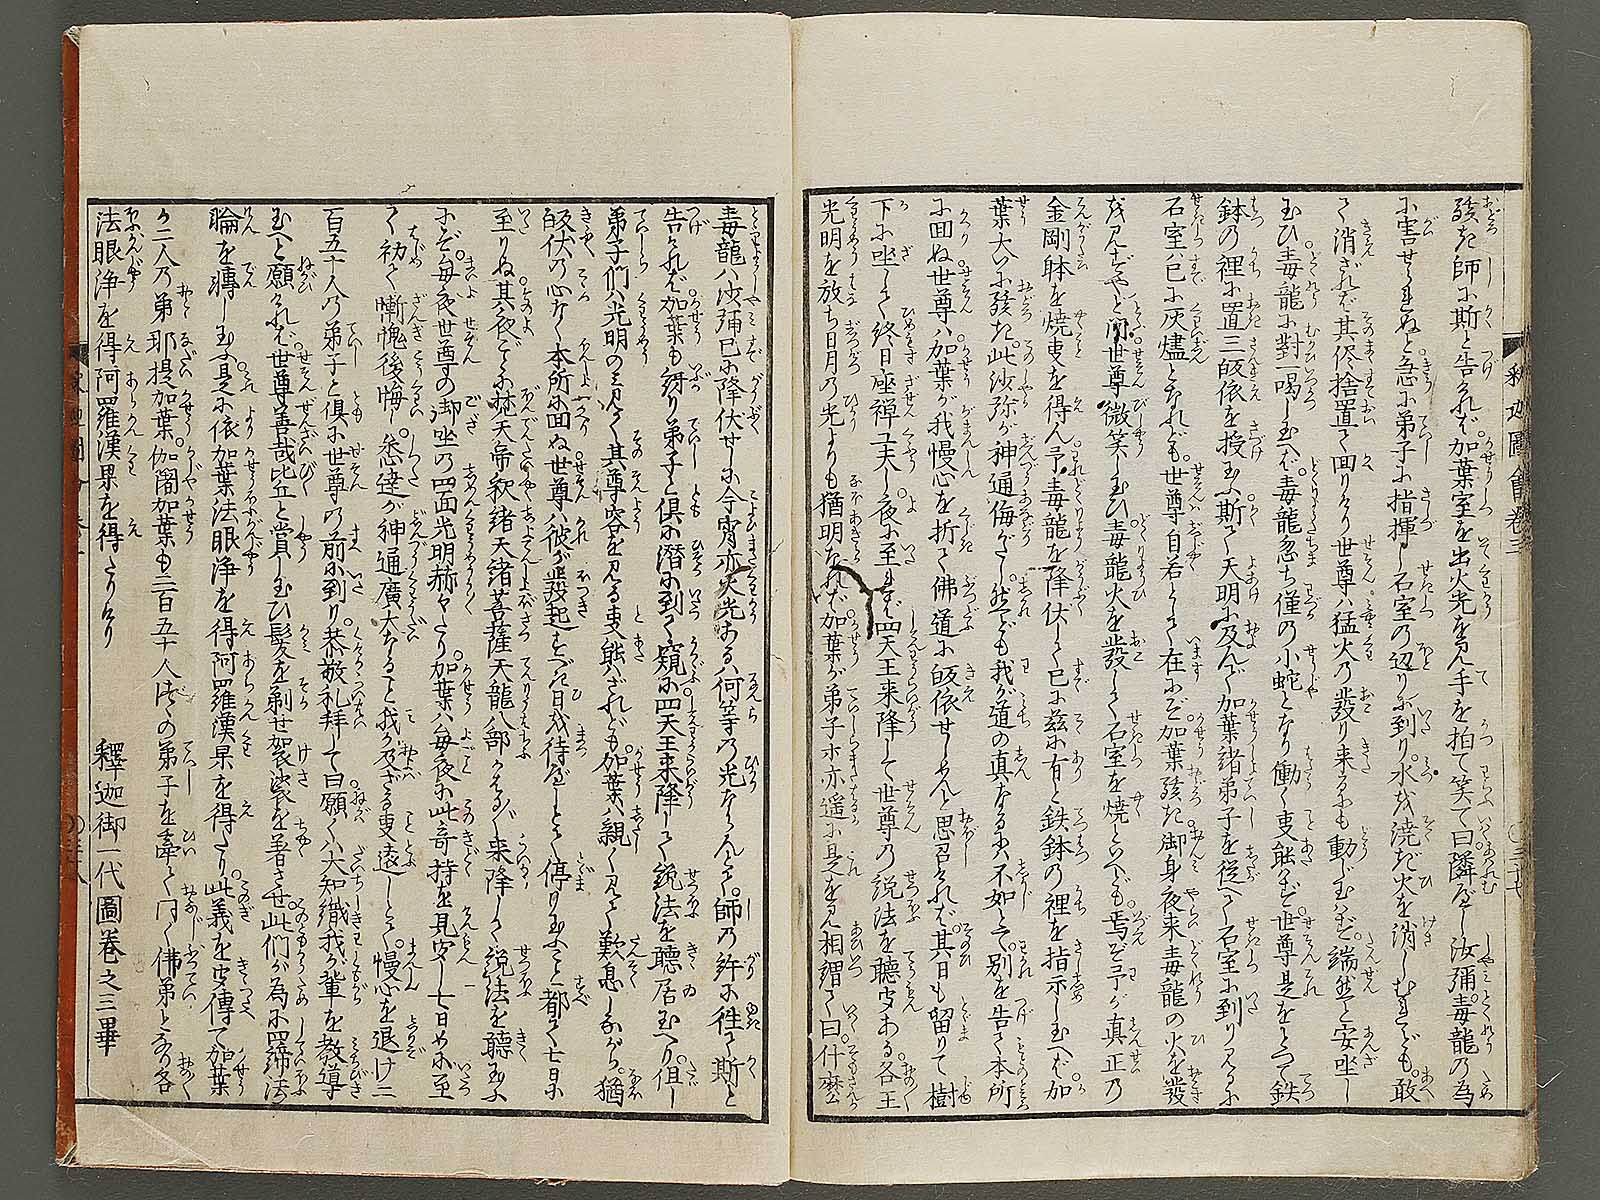 發き師に斯と告ければ加葉室を出火光を見手を拍て笑て曰隣べし汝彌毒龍の為
に害せられぬと急に弟子に指揮し石室の辺りに到り水を澆ぎ火を消しむれども敢
て消ざれば其侭捨置て回りけり世尊ハ猛火の發り来るにも動じ玉はず端然と安坐し
玉ひ毒龍に對一喝し玉へば毒龍忽ち僅の小蛇となり働く事能はず世尊是をとつて鉄
鉢の裡に置三皈依を授玉ふ斯て天明に及んで加葉緒弟子を従へて石室に到り見るに
石室ハ已に灰燼となれども世尊自若として在にぞ加葉發き御身夜来毒龍の火を發
を見ずやと問世尊微笑し玉ひ毒龍火を發して石室を焼といへども焉ぞ予が真正の
金剛躰を焼事を得ん予毒龍を降伏して已に茲に有と鉄鉢の裡を指示し玉へば加
葉大に發き此沙弥が神通侮がたし然ども我が道の真なるに不如とて別を告て本所
に回ぬ世尊ハ加葉が我慢心を折て佛道に皈依せしめんと思召ければ其日も留りて樹
下に坐して終日座禅工夫し夜に至れば四天王来降して世尊の説法を聽聞ある各王
光明を放ち日月の光よりも猶明なれば加葉が弟子亦亦遥に是を見相謂て曰什麼
毒龍ハ沙彌已に降伏せしに今宵亦火光ある何等の光ならんとて師の許に往て斯と
告ければ加葉も訝り弟子と倶に潜に到て窺に四天王来降して説法を聽居玉へり但し
弟子們ハ光明のミ見て其尊容を見る事能ざれども加葉ハ親く見て歎息しながら猶
皈伏の心なく本所に回ぬ世尊ハ彼が發起すべき日を待べしとて停り玉ふこと都て七日に
至りぬ其夜ごとに梵天帝釈緒天緒菩薩天龍八部かはる〴〵来降して説法を聽玉ふ
にぞ毎夜世尊の御坐の四面光明赫々たり加葉ハ毎夜に此奇特を見安し七日めに至
て初て慚愧後悔し悉達が神通廣大なること我が及ざる事遠しとて慢心を退け二
百五十人の弟子と倶に世尊の前に到り恭敬礼拝して曰願くハ大知識我が輩を教導
玉へと願ければ世尊善哉比丘と賞し玉ひ髪を剃せ袈裟を着させ此們が為に四締法
輪を轉し玉ふ是に依加葉法眼浄を得阿羅漢果を得たり此義を安傳て加葉
か二人の弟耶提加葉伽闍加葉も二百五十人づゝの弟子を牽て同く佛弟となり各
法眼浄を得阿羅漢果を得たりけり
釋迦御一代圖巻之三畢
釈迦圖會巻三